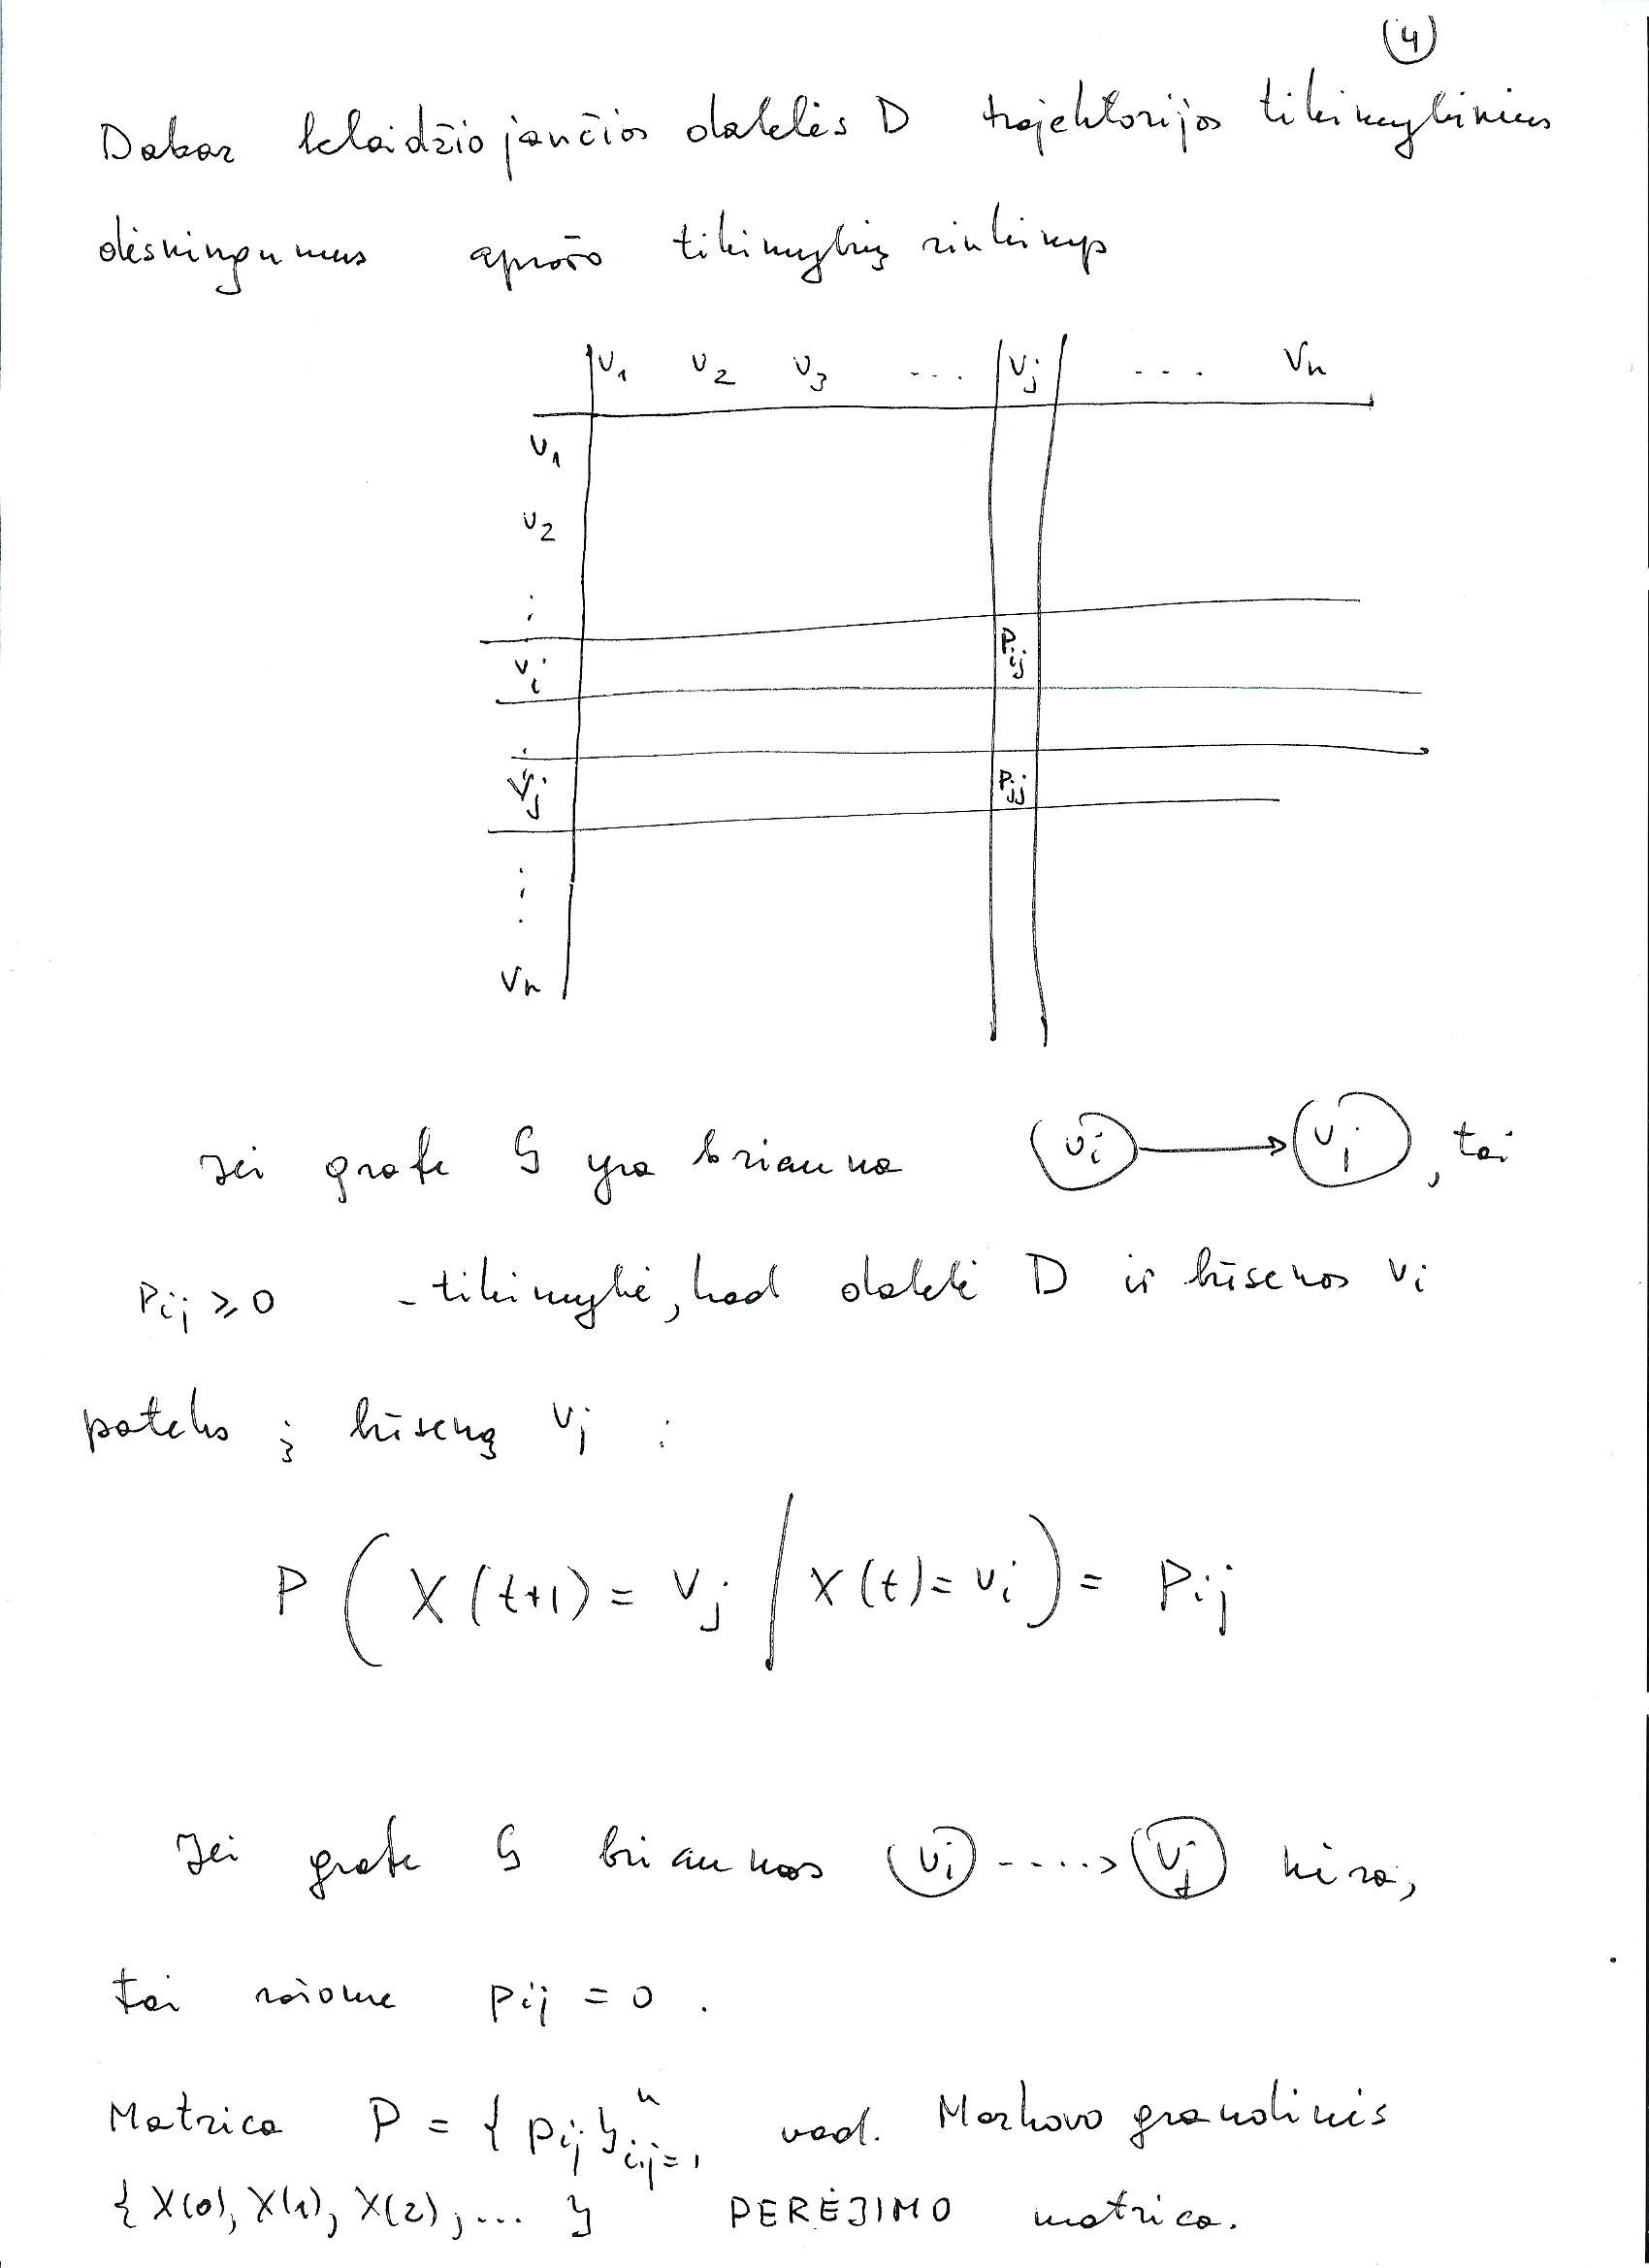 (4)
Dabar klaidžiojančios dalelės D trajektorijos tikimybinius
dėsningumus aprašo tikimybių rinkinys
v₁ v₂ v₃ ... vⱼ ... vₙ
v₁
v₂
⋮
vᵢ pᵢⱼ
⋮
vⱼ pⱼⱼ
⋮
vₙ
Jei grafe G yra briauna vᵢ → vⱼ, tai
pᵢⱼ ≥ 0 - tikimybė, kad dalelė D iš būsenos vᵢ
pateks į būseną vⱼ :
P ( X(t+1) = vⱼ / X(t) = vᵢ ) = pᵢⱼ
Jei grafe G briaunos vᵢ ----> vⱼ nėra,
tai rašome pᵢⱼ = 0 .
Matrica P = { pᵢⱼ }ⁿᵢ,ⱼ₌₁ vad. Markovo grandinės
{ X(0), X(1), X(2), ... } PERĖJIMO matrica.